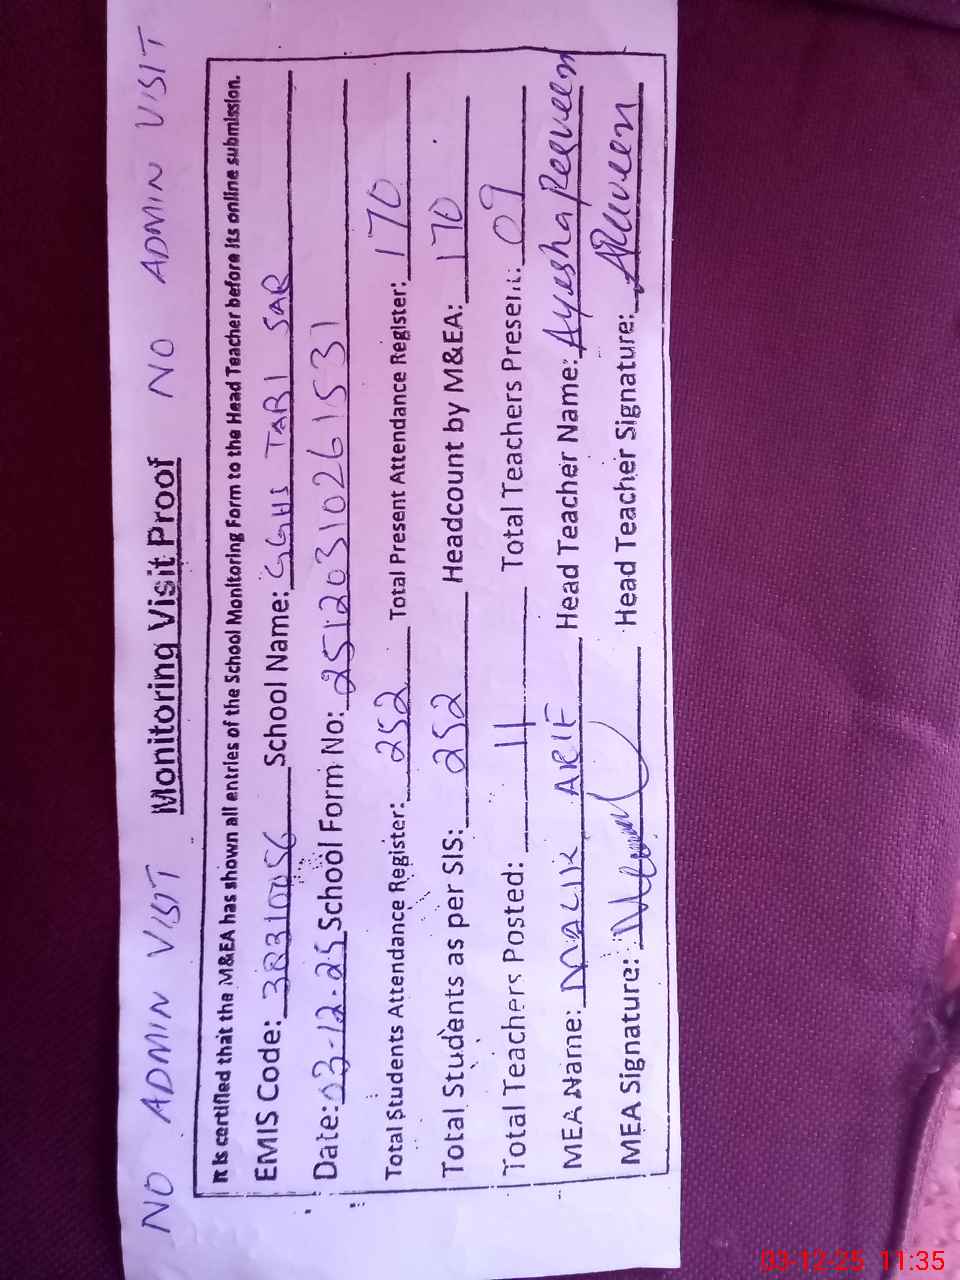 NO ADMIN VISIT Monitoring Visit Proof NO ADMIN VISIT
It is certified that the M&EA has shown all entries of the School Monitoring Form to the Head Teacher before its online submission.
EMIS Code: 38310056 School Name: GGHS TABI SAR
Date: 03-12-25 School Form No: 25120310261531
Total Students Attendance Register: 252 Total Present Attendance Register: 170
Total Students as per SIS: 252 Headcount by M&EA: 170
Total Teachers Posted: 11 Total Teachers Present: 09
MEA Name: MALIK ARIF Head Teacher Name: Ayesha Perveen
MEA Signature: Head Teacher Signature: APerveen
03-12-25 11:35